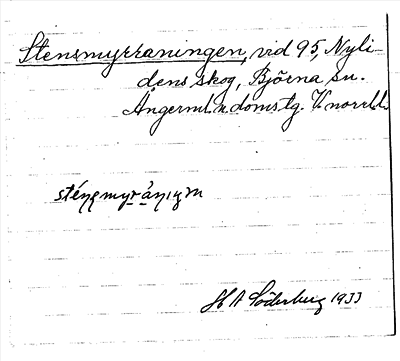 Stensmyrraningen, vid 95, Nyli-
dens skog, Björna sn.
Ångerml. n. domstg. V.norrl.l.
H A Söderberg 1933